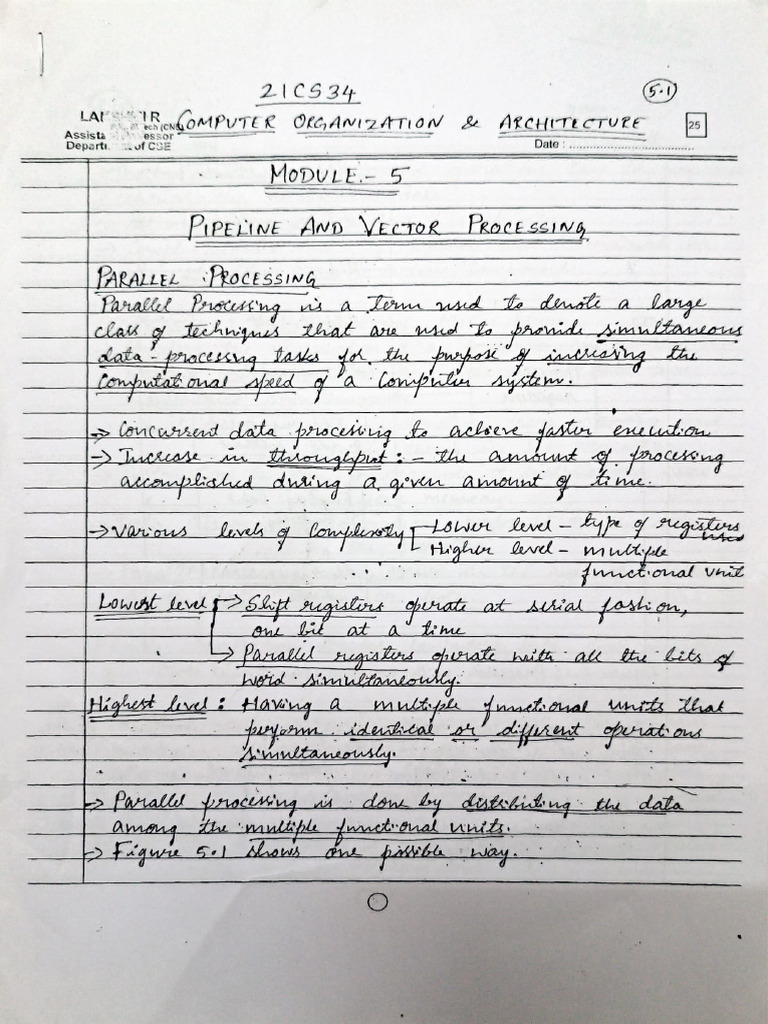 21CS34
5.1
COMPUTER ORGANIZATION & ARCHITECTURE
25
Assista essor
Departi of CSE
Date :
MODULE - 5
PIPELINE AND VECTOR PROCESSING
PARALLEL PROCESSING
Parallel Processing is a term used to denote a large
class of techniques that are used to provide simultaneous
data-processing tasks for the purpose of increasing the
computational speed of a Computer system.
-> Concurrent data processing to achieve faster execution
-> Increase in throughput : - the amount of processing
accomplished during a given amount of time.
-> Various levels of Complexity Lower level - type of registers used
Higher level - multiple
functional unit
Lowest level -> Shift registers operate at serial fashion,
one bit at a time
-> Parallel registers operate with all the bits of
word simultaneously.
Highest level : Having a multiple functional units that
perform identical or different operations
simultaneously.
-> Parallel processing is done by distributing the data
among the multiple functional units.
-> Figure 5.1 shows one possible way.